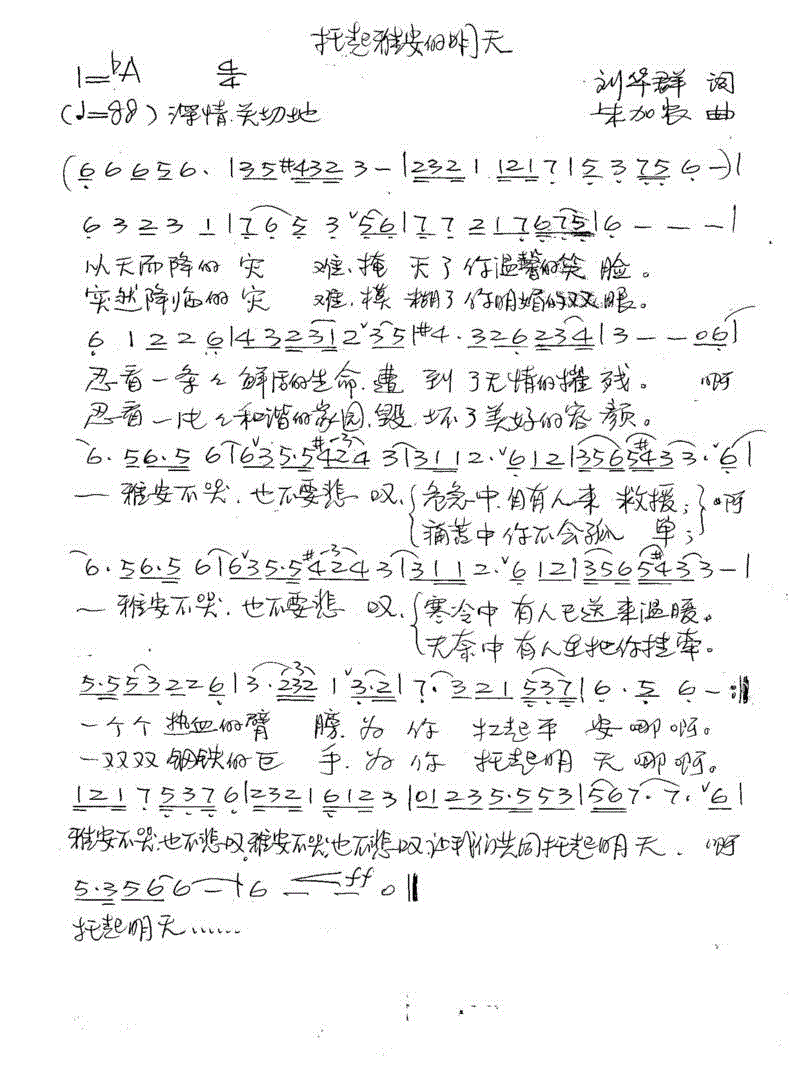 托起雅安的明天
1=♭A 4/4 刘华群 词
(♩=88) 深情、关切地 朱加农 曲
(6 6 6 5 6. | 3 5 #4 3 2 3 - | 2 3 2 1 1 2 1 7 | 5 3 7 5 6 -) |
6 3 2 3 1 | 7 6 5 3 ˅5 6 | 7 7 2 1 7 6 7 5 | 6 - - - |
以天而降的灾 难、掩 灭了你温馨的笑 脸。
突然降临的灾 难、模 糊了你明媚的双 眼。
6 1 2 2 6 | 4 3 2 3 1 2 ˅3 5 | #4. 3 2 6 2 3 4 | 3 - - 0 6 |
忍看一条々鲜活的生命、遭 到了无情的摧 残。 啊
忍看一片々和谐的家园、毁 坏了美好的容 颜。
6. 5 6. 5 6 | ˅6 3 5. 5 #4 2 4 3 | 3 1 1 2. ˅6 1 2 | 3 5 6 5 #4 3 3. ˅6 |
— 雅安不哭、也不要悲 叹、{危急中、自有人来 救援;} 啊
{痛苦中你不会孤 单;}
6. 5 6. 5 6 | ˅6 3 5. 5 #4 2 4 3 | 3 1 1 2. ˅6 1 2 | 3 5 6 5 #4 3 3 - |
— 雅安不哭、也不要悲 叹、{寒冷中有人已送来温暖。
{无奈中有人在把你挂牵。
5. 5 5 3 2 2 6 | 3. 2 3 2 1 ˅3. 2 | 7. 3 2 1 5 3 7 | 6. 5 6 - :‖
一个个热血的臂 膀、为 你 扛起平 安哪啊。
一双双钢铁的巨 手、为 你 托起明 天哪啊。
1 2 1 7 5 3 7 6 | 2 3 2 1 6 1 2 3 | 0 1 2 3 5. 5 5 3 | 5 6 7. 7. ˅6 |
雅安不哭、也不悲叹、雅安不哭、也不悲叹、让我们共同托起明天、啊
5. 3 5 6 6 - | 6 - - ff 0 ‖
托起明天……